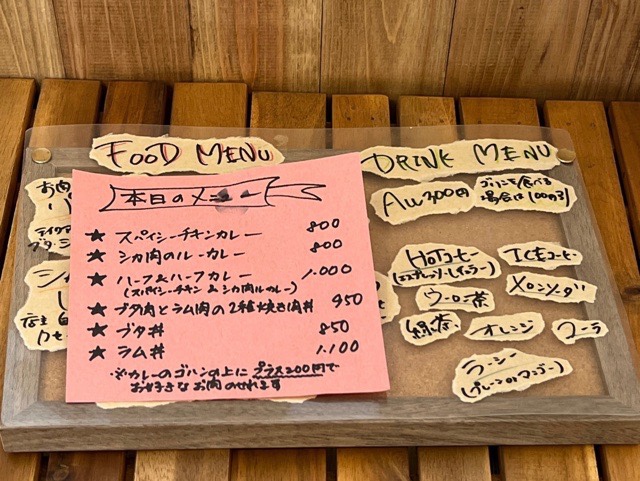 FOOD MENU
本日のメニュー
★ スパイシーチキンカレー 800
★ シカ肉のルーカレー 800
★ ハーフ&ハーフカレー 1.000
(スパイシーチキン & シカ肉ルーカレー)
★ ブタ肉とラム肉の2種焼き肉丼 950
★ ブタ丼 850
★ ラム丼 1.100
※カレーのゴハンの上にプラス200円で
お好きなお肉のせれます
お肉
DRINK MENU
All 300円
ゴハンを食べる
場合は100円引
HOTコーヒー
(エスプレッソ・レギュラー)
ICEコーヒー
ウーロン茶
メロンソーダ
緑茶
オレンジ
コーラ
ラッシー
(プレーン or マンゴー)